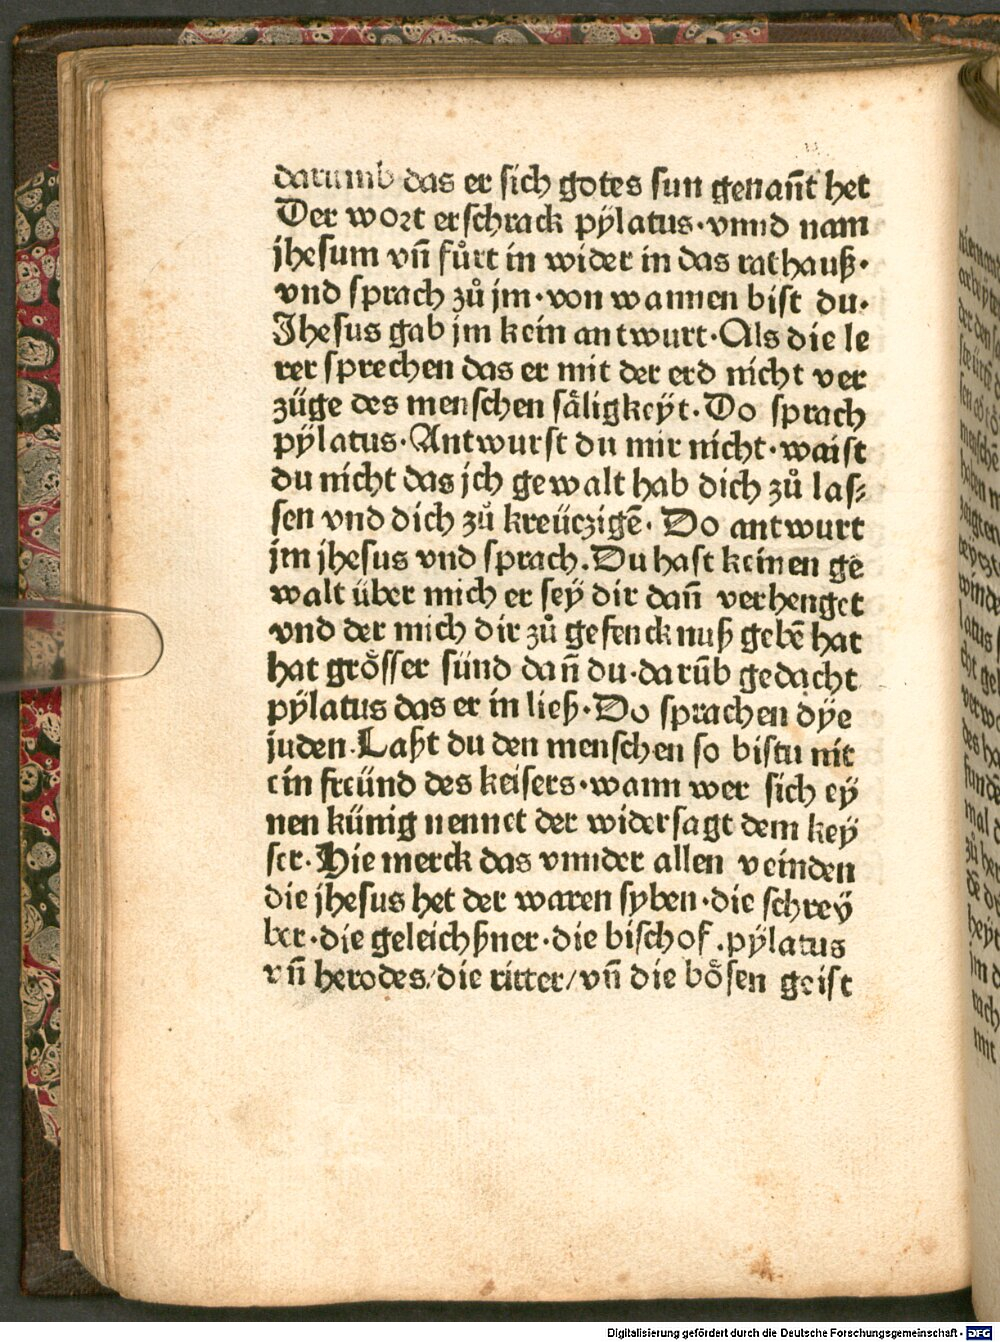 darumb das er sich gotes sun genañt het
Der wort erschrack pÿlatus·vnnd nam
jhesum vñ fůrt in wider in das rathauß·
vnd sprach zů jm·von wannen bist du·
Jhesus gab jm kein antwurt·Als die le
rer sprechen das er mit der erd nicht ver
züge des menschen såligkeÿt·Do sprach
pÿlatus·Antwurst du mir nicht·waist
du nicht das jch gewalt hab dich zů las⸗
sen vnd dich zů kreüczigē· Do antwurt
jm jhesus vnd sprach.Du hast keinen ge
walt über mich er seÿ dir dañ verhenget
vnd der mich dir zů gefencknuß gebē hat
hat grősser sünd dañ du·darūb gedacht
pÿlatus das er in ließ·Do sprachen dÿe
juden·Laßt du den menschen so bistu nit
ein freünd des keisers·wann wer sich eÿ
nen künig nennet der widersagt dem keÿ
ser·Hie merck das vnnder allen veinden
die jhesus het der waren syben·die schreÿ
ber·die geleichßner·die bischof.pÿlatus
vñ herodes/die ritter/vñ die bősen geist
Digitalisierung gefördert durch die Deutsche Forschungsgemeinschaft - DFG